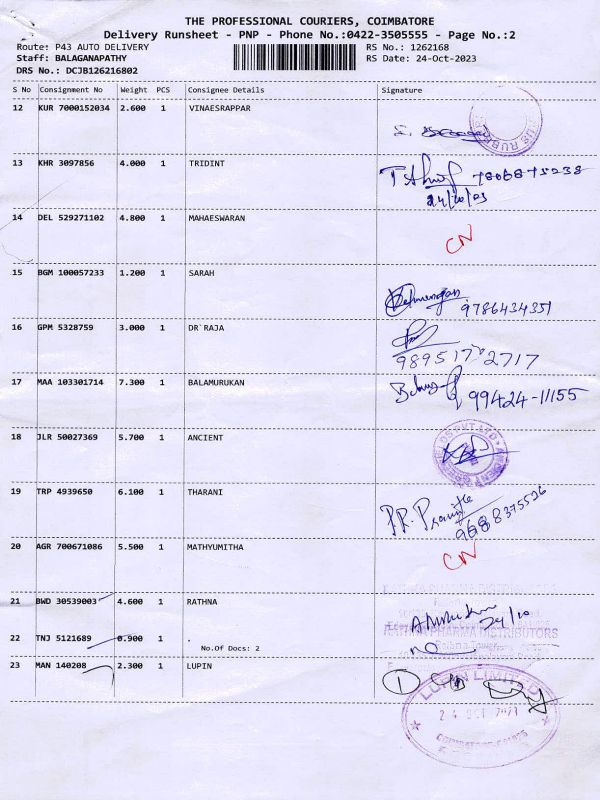 THE PROFESSIONAL COURIERS, COIMBATORE
Delivery Runsheet - PNP - Phone No.:0422-3505555 - Page No.:2
Route: P43 AUTO DELIVERY RS No.: 1262168
Staff: BALAGANAPATHY RS Date: 24-Oct-2023
DRS No.: DCJB126216802
S No Consignment No Weight PCS Consignee Details Signature
12 KUR 7000152034 2.600 1 VINAESRAPPAR
13 KHR 3097856 4.000 1 TRIDINT
24/10/23
14 DEL 529271102 4.800 1 MAHAESWARAN
CN
15 BGM 100057233 1.200 1 SARAH
9786434351
16 GPM 5328759 3.000 1 DR`RAJA
17 MAA 103301714 7.300 1 BALAMURUKAN
99424-11155
18 JLR 50027369 5.700 1 ANCIENT
19 TRP 4939650 6.100 1 THARANI
9688375526
20 AGR 700671086 5.500 1 MATHYUMITHA
CN
21 BWD 30539003 4.600 1 RATHNA
24/10
22 TNJ 5121689 0.900 1 .
No.Of Docs: 2
RATHNA PHARMA DISTRIBUTORS
23 MAN 140208 2.300 1 LUPIN
1
LUPIN LIMITED
24 OCT 2023